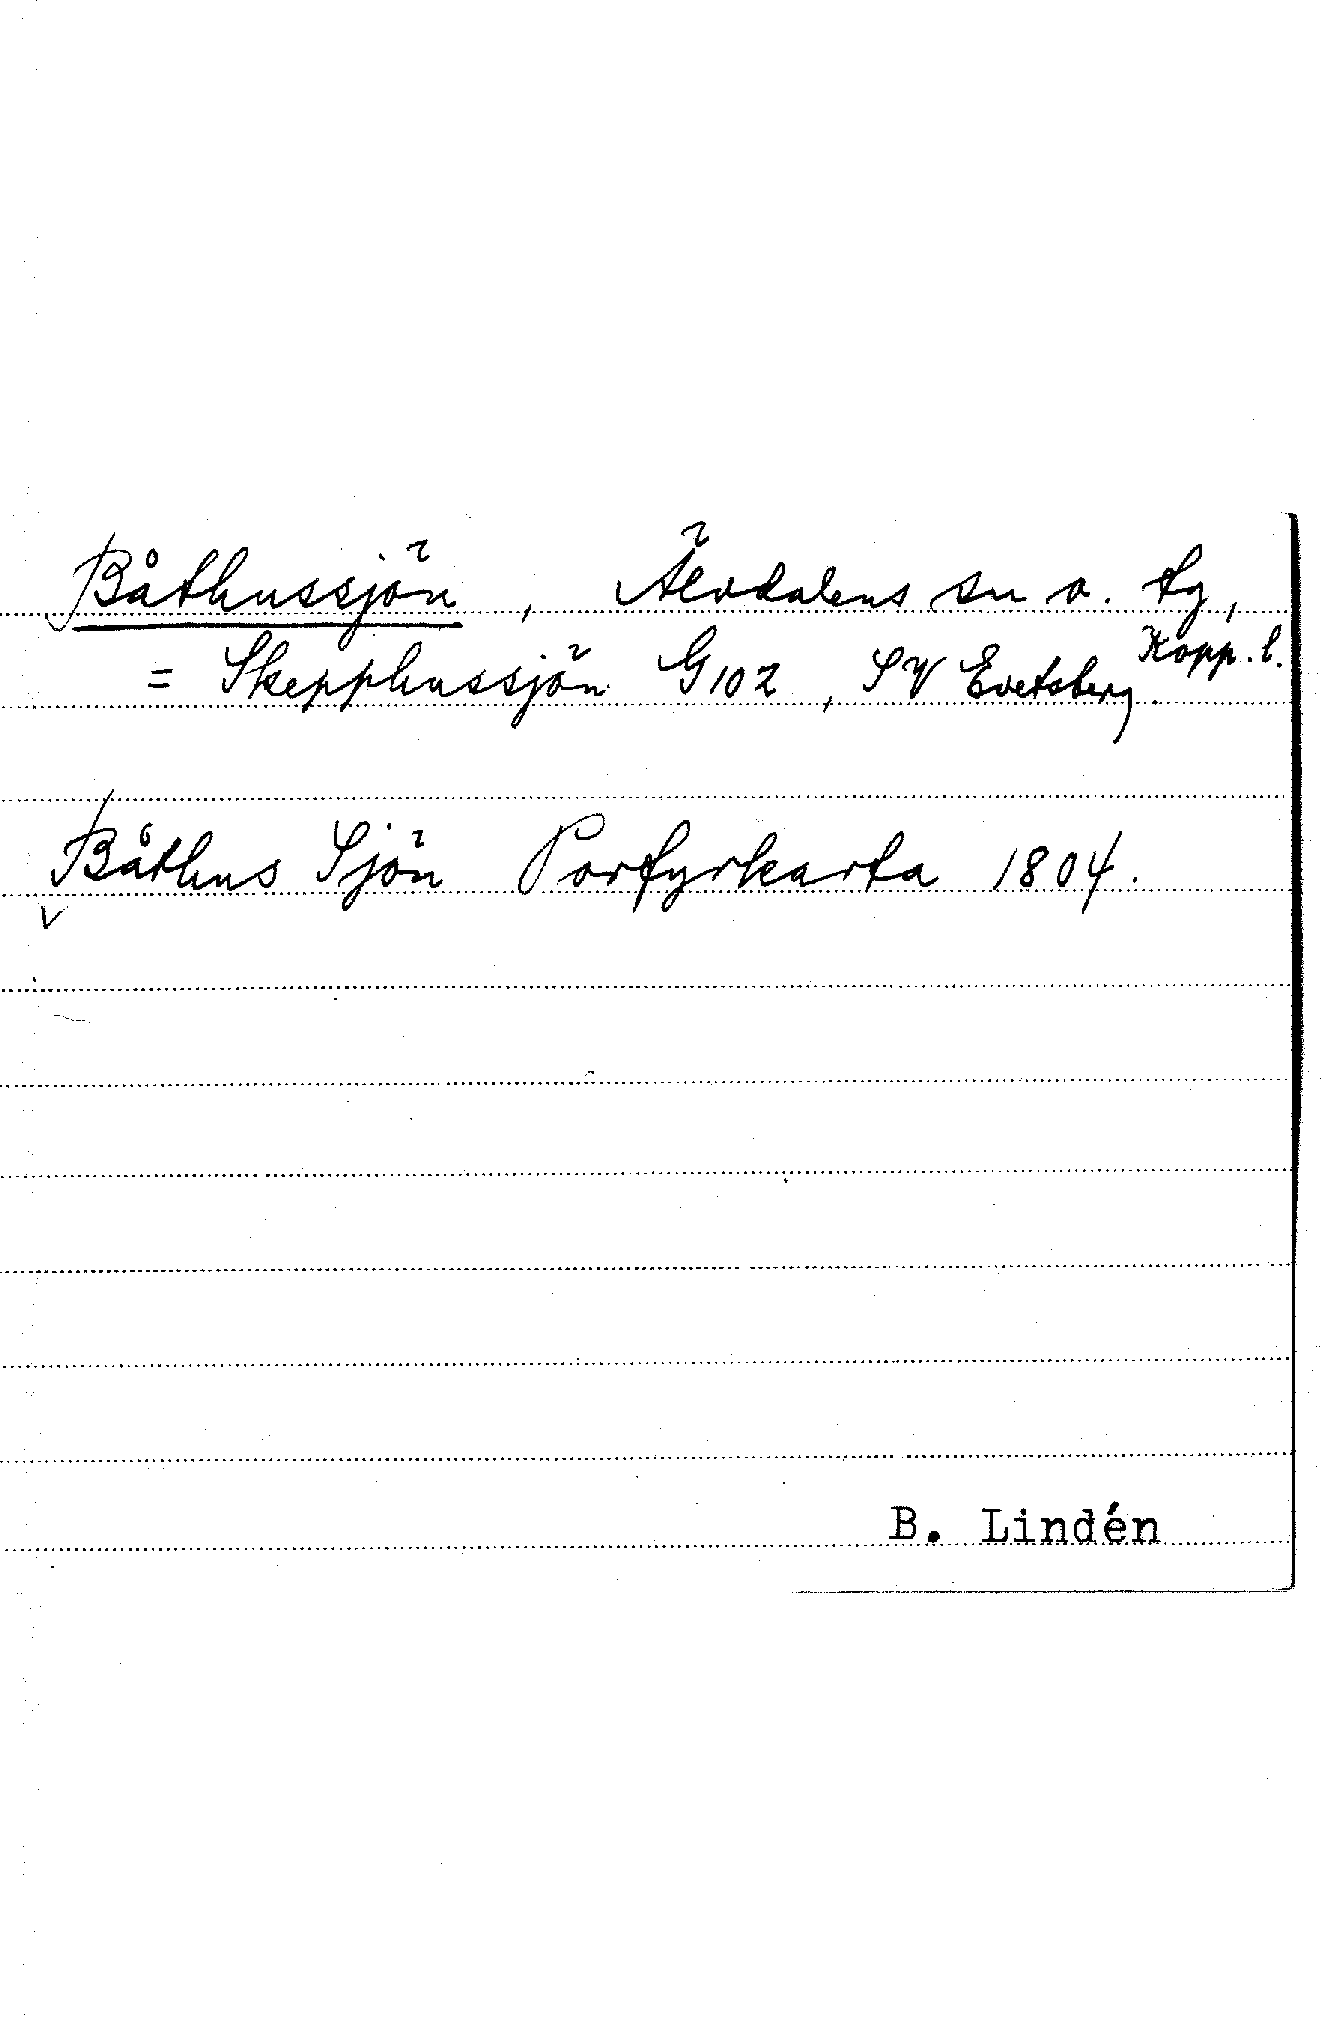 Båthussjön, Älvdalens sn o. tg,
Kopp. l.
= Skepphussjön G102, SV Evetsberg.
Båthus Sjön Porfyrkarta 1804.
B. Lindén